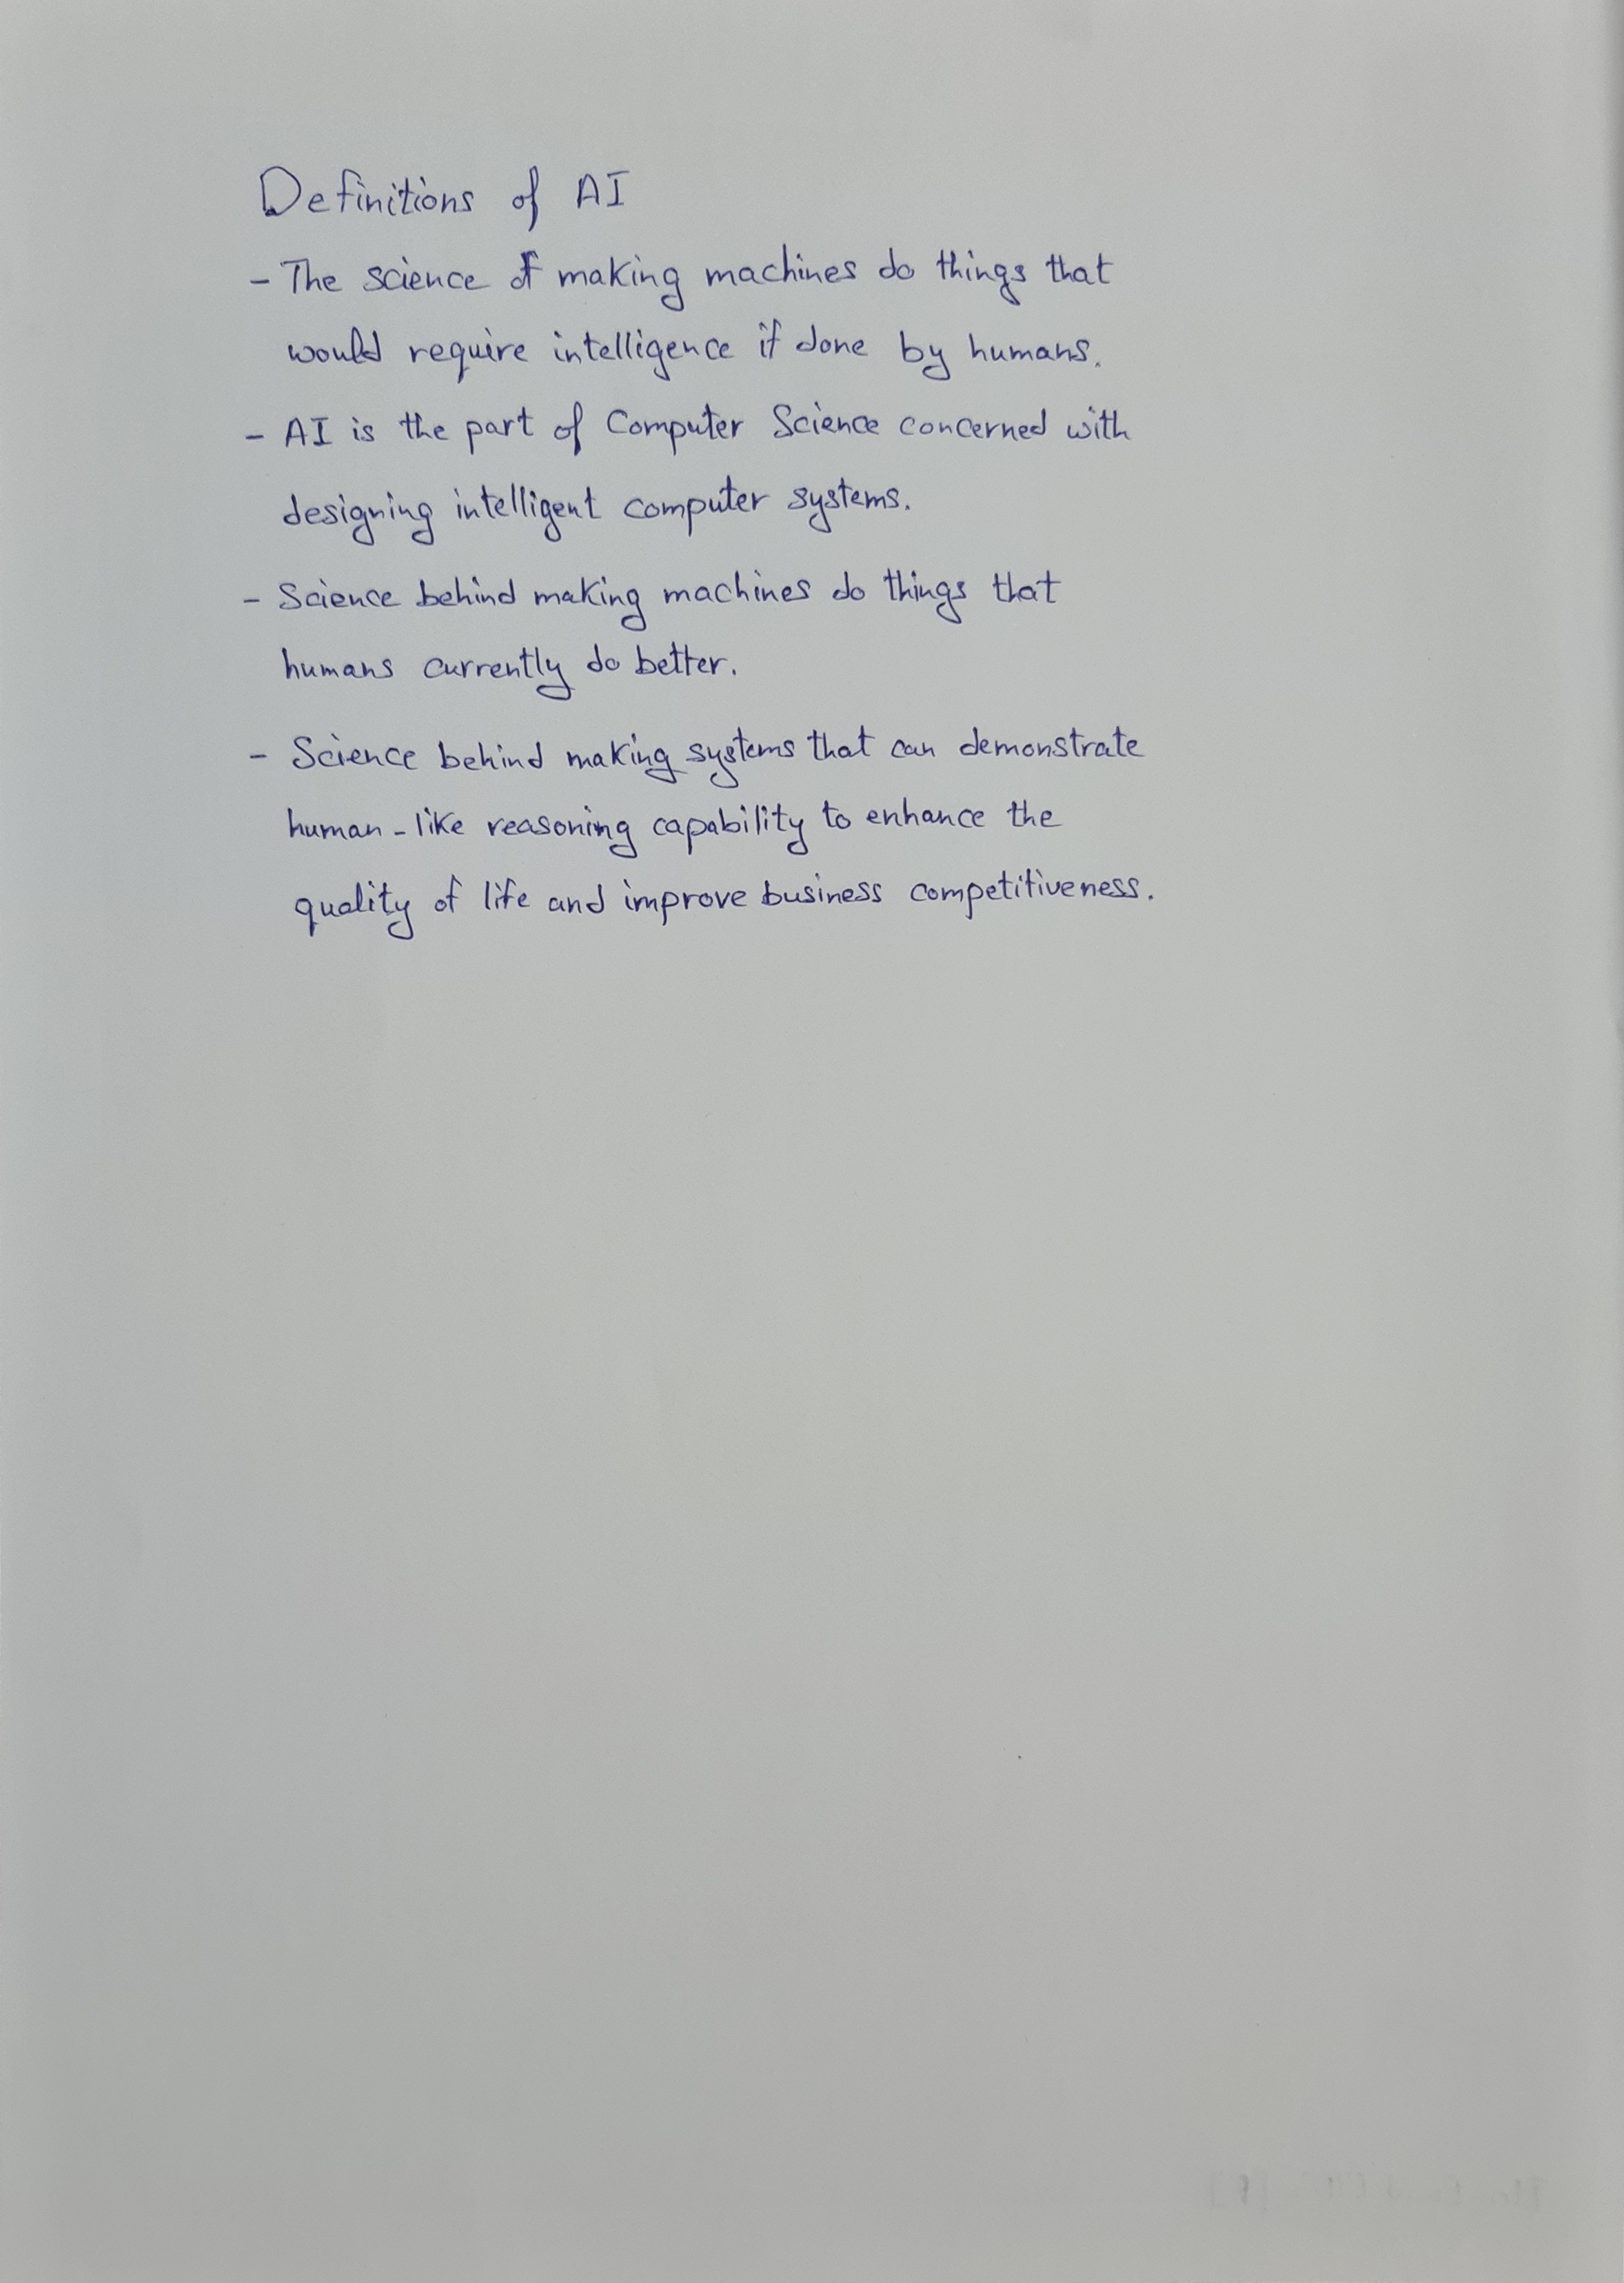 Definitions of AI
- The science of making machines do things that
would require intelligence if done by humans.
- AI is the part of Computer Science concerned with
designing intelligent computer systems.
- Science behind making machines do things that
humans currently do better.
- Science behind making systems that can demonstrate
human-like reasoning capability to enhance the
quality of life and improve business competitiveness.